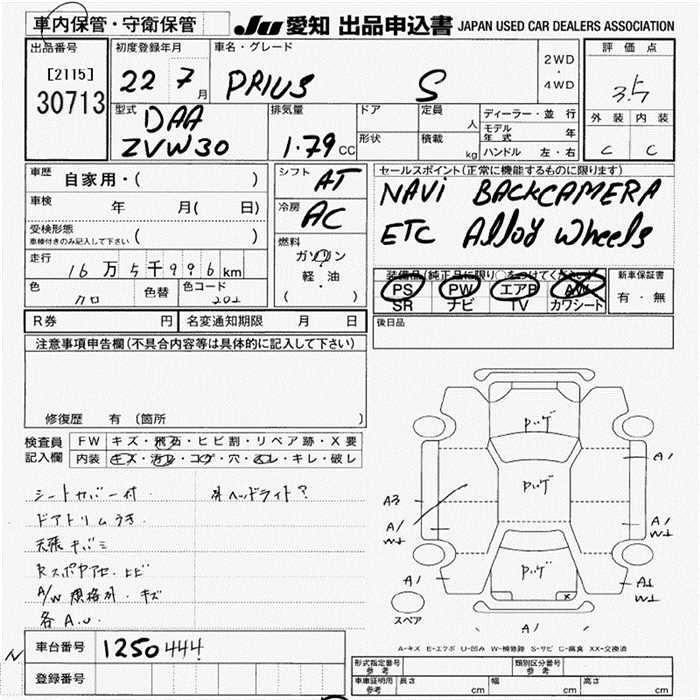 車内保管・守衛保管
JU 愛知 出品申込書 JAPAN USED CAR DEALERS ASSOCIATION
出品番号 初度登録年月 車名・グレード 評価点
[2115]
30713
22 7 月
PRIUS S
2WD
・
4WD
3.5
外装 内装
C C
型式 排気量 ドア 定員 人
DAA
ZVW30
1.79 CC
形状 積載 kg
ディーラー・並 行
モデル年式 年
ハンドル 左・右
車歴 自家用・( )
車検 年 月( 日)
受検形態
車検付きのみ記入して下さい ( )
走行 16万5千996km
色 クロ 色替 色コード 202
シフト AT
冷房 AC
燃料
ガソリン
軽・油
( )
セールスポイント(正常に機能するものに限ります)
NAVi BACKCAMERA
ETC Alloy Wheels
装備品(純正品に限り○をつけてください)
PS PW エアB AW
SR ナビ TV カワシート
新車保証書
有・無
R券 円 名変通知期限 月 日
後日品
注意事項申告欄(不具合内容等は具体的に記入して下さい)
修復歴 有 (箇所 )
検査員記入欄
FW キズ・飛石・ヒビ割・リペア跡・X要
内装 キズ・汚れ・コゲ・穴・スレ・キレ・破レ
シートカバー付 外ヘッドライト?
ドアトリムうき
天張キバミ
Rスポヤアセ.ヒビ
A/W 規格外・キズ
各A.U.
車台番号 1250444
登録番号
N
P.ッゲ
P.ッゲ
P.ッゲ
A1
A3
A1
A1
W1
A1
W1
A1
A1
スペア
A-キズ E-エクボ U-凹み W-補修跡 S-サビ C-腐食 XX-交換済
形式指定番号 参考 類別区分番号 参考
車庫証明用 参考 長さ cm 幅 cm 高さ cm